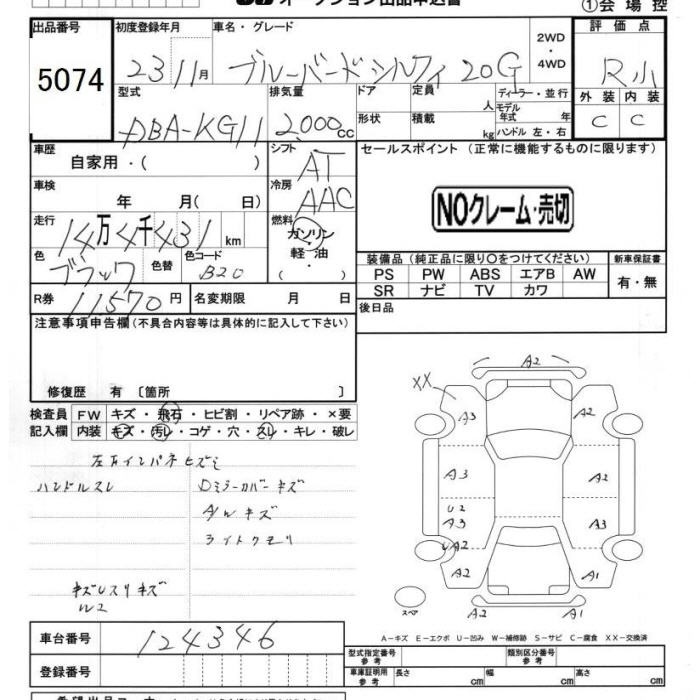 オークション出品申込書
①会場控
出品番号 初度登録年月 車名・グレード 評価点
5074 23 11月 ブルーバードシルフィ 20G 2WD ・ 4WD R小
型式 排気量 ドア 定員 人 ディーラー・並行 外装 内装
DBA-KG11 2000cc 形状 積載 kg モデル年式 年 ハンドル 左・右 C C
車歴 自家用・( ) シフト AT セールスポイント (正常に機能するものに限ります)
車検 年 月( 日) 冷房 AAC NOクレーム・売切
走行 14万4千431km 燃料 ガソリン・軽油・( )
色 ブラック 色替 色コード B20
装備品 (純正品に限り○をつけてください) 新車保証書
PS PW ABS エアB AW 有・無
SR ナビ TV カワ
R券 11570円 名変期限 月 日 後日品
注意事項申告欄(不具合内容等は具体的に記入して下さい)
修復歴 有 〔箇所 〕
検査員 FW キズ・飛石・ヒビ割・リペア跡・×要
記入欄 内装 キズ・汚レ・コゲ・穴・スレ・キレ・破レ
左右インパネヒズミ
ハンドルスレ Dミラーカバーキズ
A/Wキズ
ライトクモリ
W2
A2
XX
A3 A2
A3 A2
U2
A3 A3
UA2
A2 A1
スペア A2 A1
A-キズ E-エクボ U-凹み W-補修跡 S-サビ C-腐食 XX-交換済
車台番号 124346
型式指定番号 参考 類別区分番号 参考
登録番号 車庫証明用 参考 長さ cm 幅 cm 高さ cm